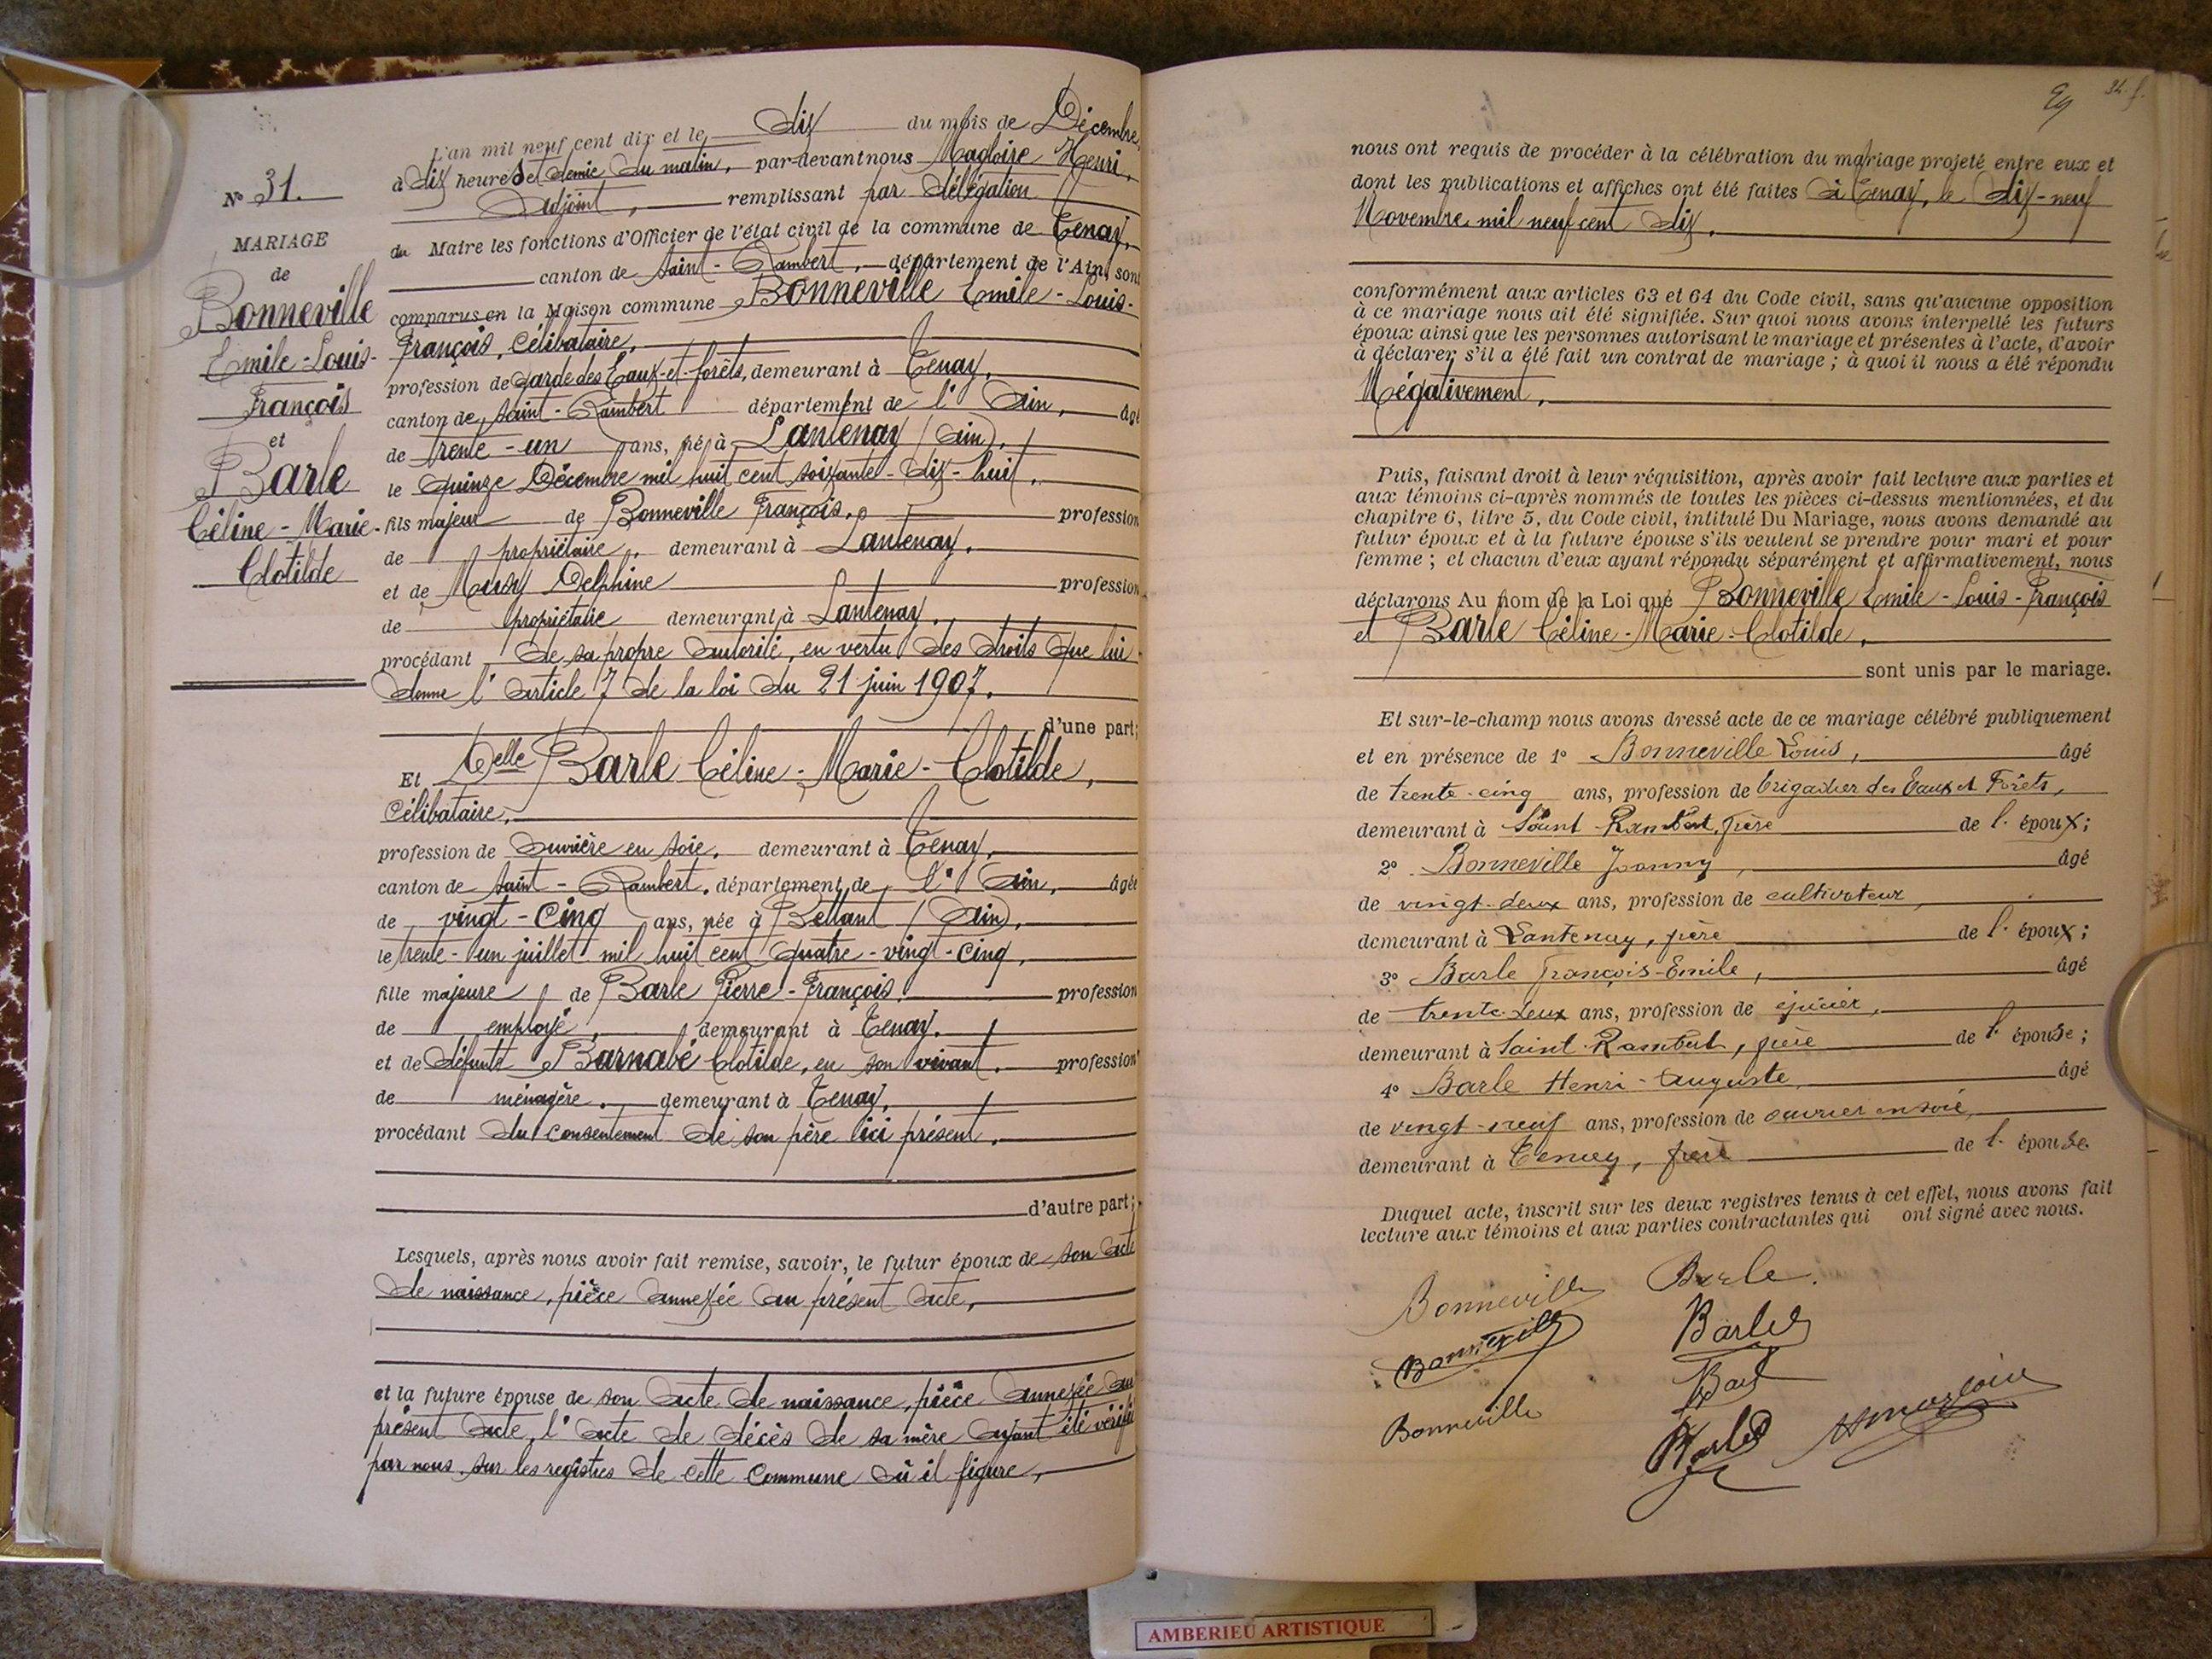 N° 31.
MARIAGE
de
Bonneville
Emile-Louis-
François
et
Barle
Céline-Marie-
Clotilde
L'an mil neuf cent dix et le dix du mois de Décembre,
à dix heures et demie du matin, par-devant nous Magloire Henri,
Adjoint, remplissant par délégation
du Maire les fonctions d'Officier de l'état civil de la commune de Tenay,
canton de Saint-Rambert, département de l'Ain, sont
comparus en la Maison commune Bonneville Emile-Louis-
François, Célibataire,
profession de Garde des Eaux-et-forêts, demeurant à Tenay,
canton de Saint-Rambert département de l'Ain, âgé
de trente-un ans, né à Lantenay (Ain),
le quinze Décembre mil huit cent soixante-dix-huit,
fils majeur de Bonneville François, profession
de propriétaire, demeurant à Lantenay,
et de Musy Delphine profession
de propriétaire demeurant à Lantenay,
procédant de sa propre autorité, en vertu des droits que lui
donne l'article 7 de la loi du 21 juin 1907.
d'une part;
Et Delle Barle Céline-Marie-Clotilde,
Célibataire,
profession de Ouvrière en soie, demeurant à Tenay,
canton de Saint-Rambert, département de l'Ain, âgée
de vingt-cinq ans, née à Bettant (Ain),
le trente-un juillet mil huit cent quatre-vingt-cinq,
fille majeure de Barle Pierre-François, profession
de employé, demeurant à Tenay,
et de défunte Barnabé Clotilde, en son vivant, profession
de ménagère, demeurant à Tenay,
procédant du consentement de son père ici présent,
d'autre part;
Lesquels, après nous avoir fait remise, savoir, le futur époux de son acte
de naissance, pièce annexée au présent acte,
et la future épouse de son acte de naissance, pièce annexée au
présent acte, l'acte de décès de sa mère ayant été vérifié
par nous sur les registres de cette commune où il figure,
29 31. f.
nous ont requis de procéder à la célébration du mariage projeté entre eux et
dont les publications et affiches ont été faites à Tenay, le dix-neuf
Novembre mil neuf cent dix,
conformément aux articles 63 et 64 du Code civil, sans qu'aucune opposition
à ce mariage nous ait été signifiée. Sur quoi nous avons interpellé les futurs
époux ainsi que les personnes autorisant le mariage et présentes à l'acte, d'avoir
à déclarer s'il a été fait un contrat de mariage ; à quoi il nous a été répondu
Négativement,
Puis, faisant droit à leur réquisition, après avoir fait lecture aux parties et
aux témoins ci-après nommés de toutes les pièces ci-dessus mentionnées, et du
chapitre 6, litre 5, du Code civil, intitulé Du Mariage, nous avons demandé au
futur époux et à la future épouse s'ils veulent se prendre pour mari et pour
femme ; et chacun d'eux ayant répondu séparément et affirmativement, nous
déclarons Au nom de la Loi que Bonneville Emile-Louis-François
et Barle Céline-Marie-Clotilde,
sont unis par le mariage.
Et sur-le-champ nous avons dressé acte de ce mariage célébré publiquement
et en présence de 1° Bonneville Louis, âgé
de trente-cinq ans, profession de brigadier des Eaux et Forêts,
demeurant à Saint-Rambert, frère de l'époux;
2° Bonneville Joanny, âgé
de vingt-deux ans, profession de cultivateur,
demeurant à Lantenay, frère de l'époux;
3° Barle François-Emile, âgé
de trente-deux ans, profession de épicier,
demeurant à Saint-Rambert, frère de l'épouse;
4° Barle Henri-Auguste, âgé
de vingt-neuf ans, profession de ouvrier en soie,
demeurant à Tenay, frère de l'épouse.
Duquel acte, inscrit sur les deux registres tenus à cet effet, nous avons fait
lecture aux témoins et aux parties contractantes qui ont signé avec nous.
Bonneville Barle.
Bonneville Barle
Barle
Bonneville Barle Hmagloire
AMBERIEU ARTISTIQUE